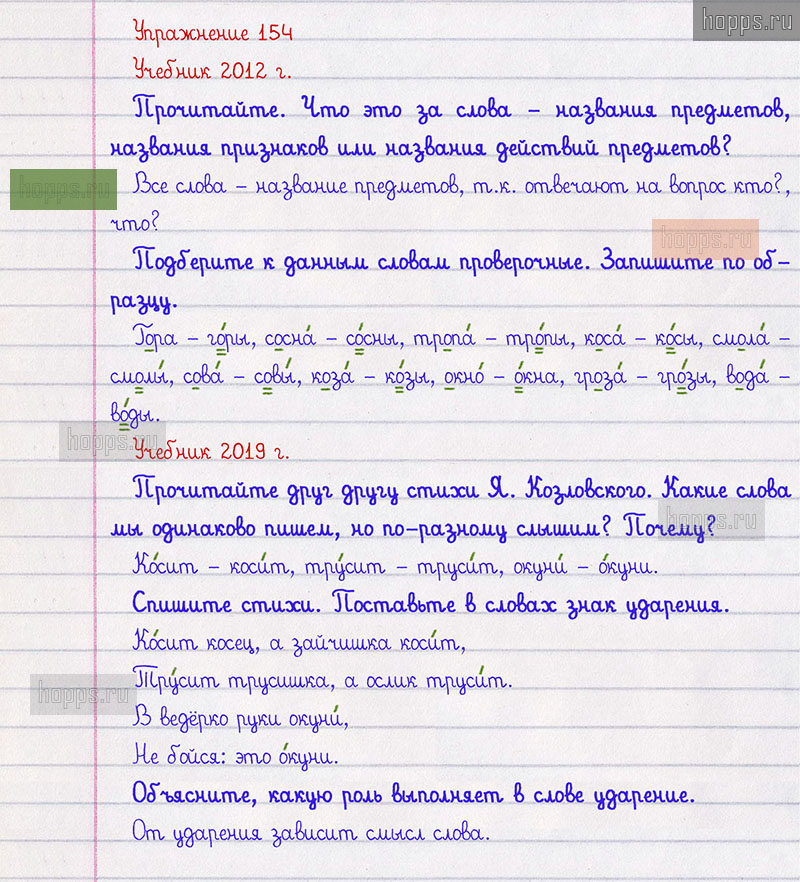 hopps.ru
Упражнение 154
Учебник 2012 г.
Прочитайте. Что это за слова – названия предметов,
названия признаков или названия действий предметов?
hopps.ru
Все слова – название предметов, т.к. отвечают на вопрос кто?,
что?
hopps.ru
Подберите к данным словам проверочные. Запишите по об-
разцу.
Гора – го́ры, сосна́ – со́сны, тропа́ – тро́пы, коса́ – ко́сы, смола́ –
смолы́, сова́ – совы́, коза́ – ко́зы, окно́ – о́кна, гроза́ – гро́зы, вода́ –
во́ды.
hopps.ru
Учебник 2019 г.
Прочитайте друг другу стихи Я. Козловского. Какие слова
мы одинаково пишем, но по-разному слышим? Почему?
hopps.ru
Ко́сит – коси́т, тру́сит – труси́т, окуни́ – о́куни.
Спишите стихи. Поставьте в словах знак ударения.
Ко́сит косец, а зайчишка коси́т,
Тру́сит трусишка, а ослик труси́т.
hopps.ru
В ведёрко руки окуни́,
Не бойся: это о́куни.
Объясните, какую роль выполняет в слове ударение.
От ударения зависит смысл слова.